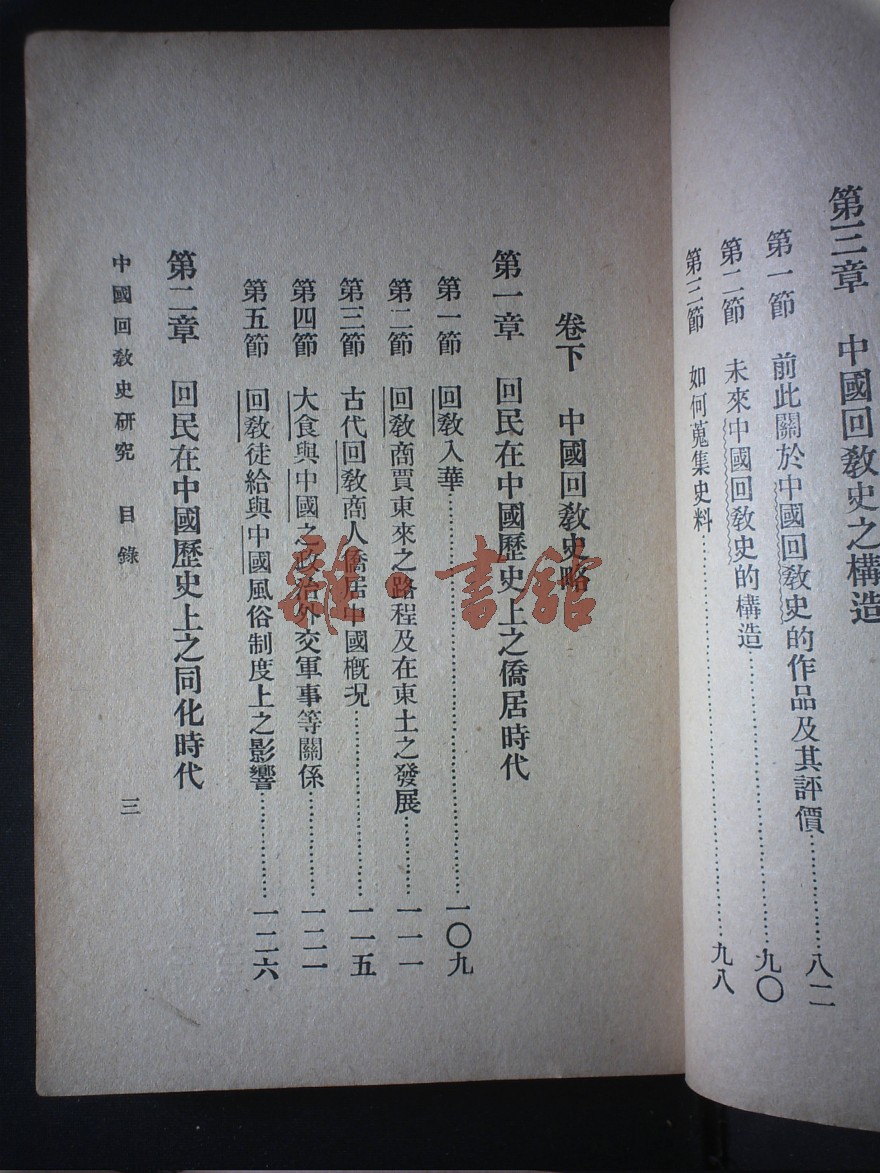 第三章　中國回教史之構造
第一節　前此關於中國回教史的作品及其評價……………八二
第二節　未來中國回教史的構造……………九〇
第三節　如何蒐集史料……………九八
卷下　中國回教史略
第一章　回民在中國歷史上之僑居時代
第一節　回教入華……………一〇九
第二節　回教商賈東來之路程及在東土之發展……………一一一
第三節　古代回教商人僑居中國概況……………一一五
第四節　大食與中國之政治外交軍事等關係……………一二一
第五節　回教徒給與中國風俗制度上之影響……………一二六
第二章　回民在中國歷史上之同化時代
中國回教史研究　目錄
三
雜·書館